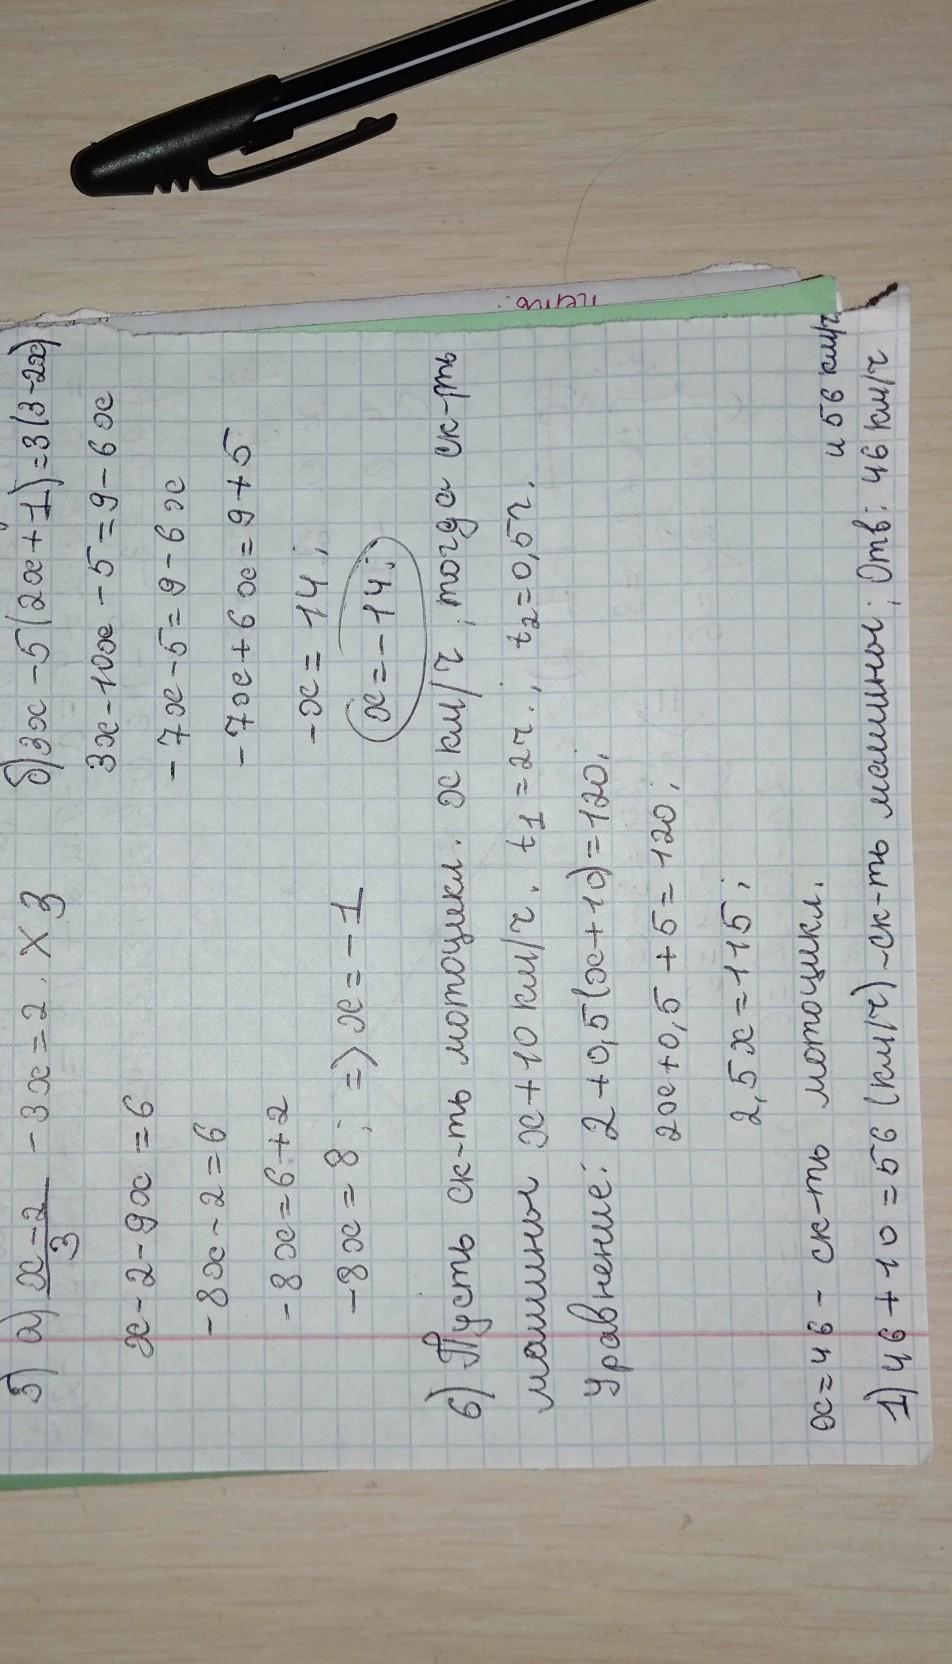 5) а) x-2/3 - 3x = 2. × 3
x - 2 - 9x = 6
-8x - 2 = 6
-8x = 6 + 2
-8x = 8; => x = -1
б) 3x - 5(2x + 1) = 3(3 - 2x)
3x - 10x - 5 = 9 - 6x
-7x - 5 = 9 - 6x
-7x + 6x = 9 + 5
-x = 14;
x = -14;
6) Пусть ск-ть мотоцикл. x км/ч; тогда ск-ть
машины x + 10 км/ч. t1 = 2ч.; t2 = 0,5ч.
Уравнение: 2 + 0,5(x + 10) = 120;
2x + 0,5 + 5 = 120;
2,5x = 115;
x = 46 - ск-ть мотоцикл.
1) 46 + 10 = 56 (км/ч) - ск-ть машины; Отв: 46 км/ч
и 56 км/ч